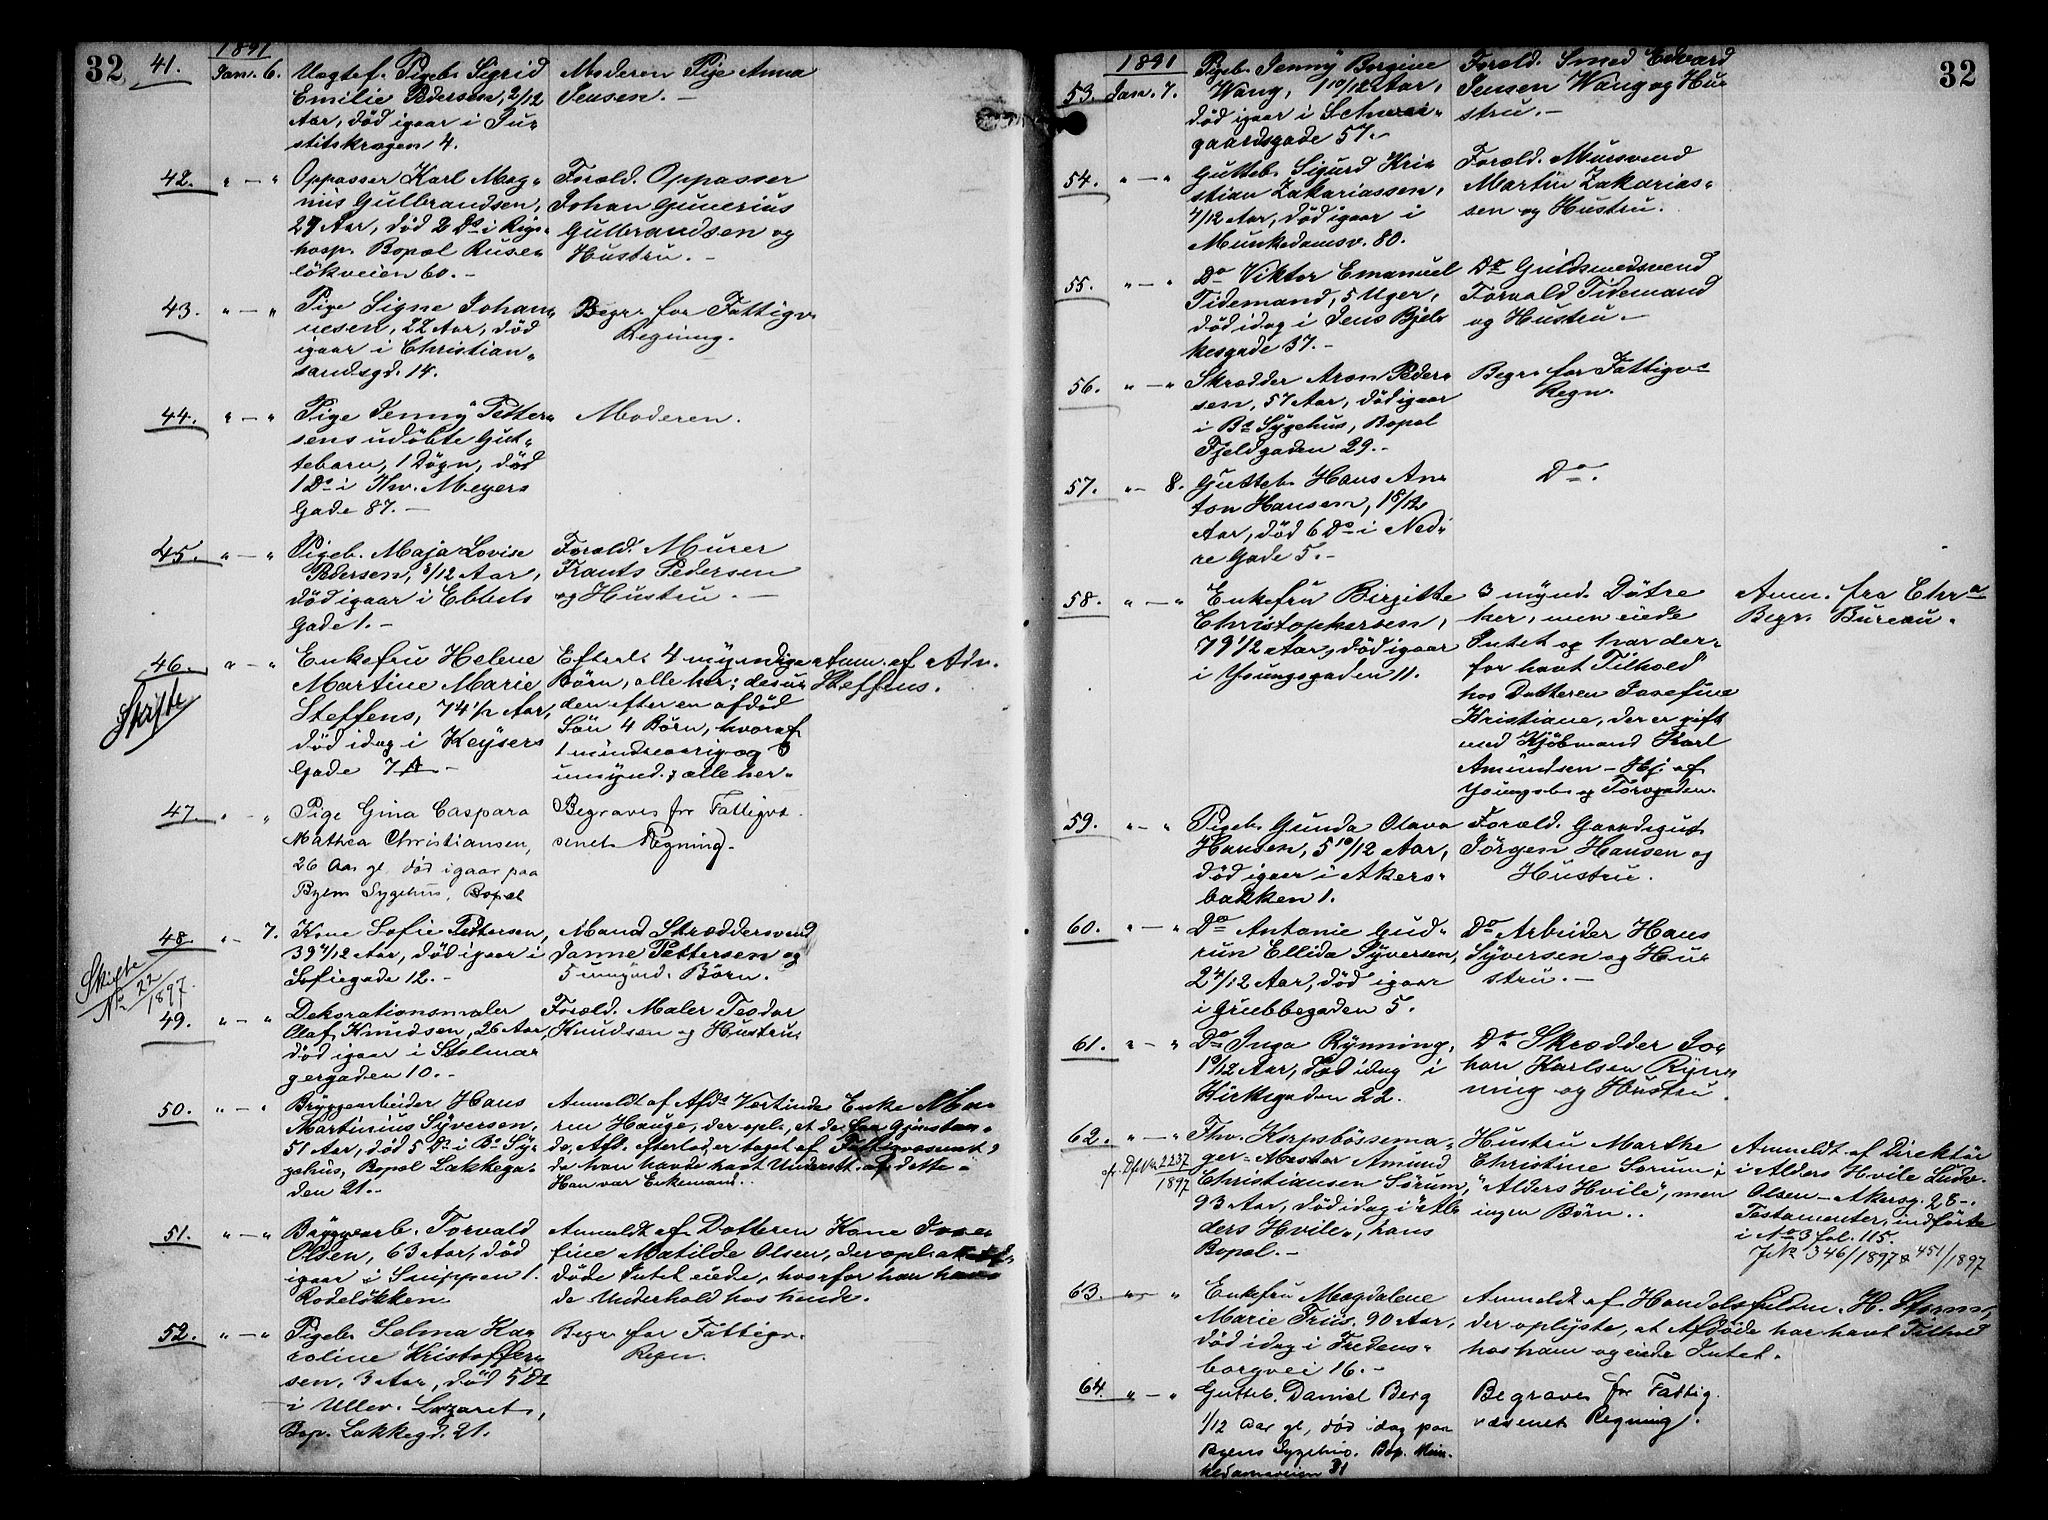 32
1891
41. Jan. 6. Uægtef. Pigeb. Sigrid
Emilie Pedersen, 2/12
Aar, død igaar i Ju-
stitskragen 4.
Moderen Pige Anna
Jensen. -
42. " - " Oppasser Karl Mag-
nus Gulbrandsen,
29 Aar, død 2 Ds i Rigs-
hosp. Bopæl Ruse-
løkveien 60. -
Foræld. Oppasser
Johan Gunerius
Gulbrandsen og
Hustru. -
43. " - " Pige Signe Johan-
nesen, 22 Aar, død
igaar i Christian-
sandsgd. 14.
Begr. for Fattigv.
Regning.
44. " - " Pige Jenny Petter-
sens udøbte Gut-
tebarn, 1 Døgn, død
1 Ds i Thv. Meyers
Gade 87. -
Moderen.
45. " - " Pigeb. Maja Lovise
Pedersen, 8/12 Aar,
død igaar i Ebbels
Gade 1. -
Foræld. Murer
Frants Pedersen
og Hustru. -
46. " - " Enkefru Helene
Martine Marie
Steffens, 74 1/2 Aar,
død idag i Keysers
Gade 7A -
Skifte
Efterl. 4 myndige
Børn, alle her; desu-
den efter en afdød
Søn 4 Børn, hvoraf
1 mindreaarig og 3
umynd.; alle her.
Anm. af Adv.
Steffens.
47. " - " Pige Gina Caspara
Mathea Christiansen,
26 Aar gl. død igaar paa
Byens Sygehus, Bopæl
Begraves for Fattigvæ-
senets Regning.
48. " - 7. Kone Sofie Pettersen,
39 4/12 Aar, død igaar i
Sofiegade 12. -
Skifte
No 22/1897.
Mand Skræddersvend
Janne Pettersen og
5 umynd. Børn.
49. " - " Dekorationsmaler
Olaf Knudsen, 26 Aar,
død igaar i Stolma-
gergaden 10. -
Foræld. Maler Teodor
Knudsen og Hustru.
50. " - " Bryggearbeider Hans
Martinius Syversen,
51 Aar, død 5 Ds i Bs Sy-
gehus, Bopæl Lakkega-
den 21. -
Anmeldt af Afds Vertinde Enke Ma-
ren Hauge, der opl., at de faa Gjenstan-
de, Afd. efterlod, er taget af Fattigvæsenet,
da han havde havt Understt. af dette. -
Han var Enkemand.
51. " - " Bryggearb. Torvald
Olsen, 63 Aar, død
igaar i Snippen 1.
Rodeløkken
Anmeldt af Datteren Kone Jose-
fine Matilde Olsen, der opl. at Af-
døde Intet eiede, hvorfor han hav-
de Underhold hos hende.
52. " - " Pigeb. Selma Ka-
roline Kristoffer-
sen, 3 Aar, død 5 Ds
i Ullev. Lazaret,
Bop. Lakkegd. 21.
Begr. for Fattigv.
Regn.
32
1891
53. Jan. 7. Pigeb. Jenny Borgine
Wang, 1 10/12 Aar,
død igaar i Schwei-
gaardsgade 57. -
Foræld. Smed Edvard
Jensen Wang og Hu-
stru. -
54. " - " Gutteb. Sigurd Kri-
stian Zakariassen,
4/12 Aar, død igaar i
Munkedamsv. 80.
Foræld. Mursvend
Martin Zakarias-
sen og Hustru.
55. " - " Do Viktor Emanuel
Tidemand, 5 Uger,
død idag i Jens Bjel-
kesgade 37. -
Do Guldsmedsvend
Torvald Tidemand
og Hustru. -
56. " - " Skrædder Aron Peder-
sen, 57 Aar, død igaar
i Bs Sygehus, Bopæl
Fjeldgaden 29. -
Begr. for Fattigvs
Regn.
57. " - 8. Gutteb. Hans An-
ton Hansen, 1 8/12
Aar, død 6 Ds i Ned-
re Gade 5. -
Do.
58. " - " Enkefru Birgitte
Christophersen,
79 1/2 Aar, død igaar
i Youngsgaden 11.
3 mynd. Døtre
her, men eiede
Intet og har der-
for havt Tilhold
hos Datteren Josefine
Kristiane, der er gift
med Kjøbmand Karl
Amundsen - Hj. af
Youngsb. og Torvgaden.
Anm. fra Chra
Begr. Bureau.
59. " - " Pigeb. Gunda Olava
Hansen, 5 10/12 Aar,
død igaar i Akers-
bakken 1.
Foræld. Gaardsgut
Jørgen Hansen og
Hustru.
60. " - " Do Antonie Gud-
run Ellida Syversen,
2 4/12 Aar, død igaar
i Grubbegaden 5.
Do Arbeider Hans
Syversen og Hu-
stru. -
61. " - " Do Inga Rynning,
10/12 Aar, død idag i
Kirkegaden 22.
Do Skrædder Jo-
han Karlsen Ryn-
ning og Hustru.
62. " - " Fhv. Korpsbøssema-
ger-Mester Amund
Christiansen Sørum,
93 Aar, død idag i "Al-
ders Hvile", hans
Bopæl. -
cfr. Df. No 2237/1897
Hustru Marthe
Christine Sørum i
"Alders Hvile", men
ingen Børn.
Anmeldt af Direktør
i Alders Hvile Ludv.
Olsen - Akersg. 28 -.
Testamenter, indførte
i No 3 fol. 115.
J.No 346/1897 & 451/1897
63. " - " Enkefru Magdalene
Marie Friis, 90 Aar,
død idag i Fredens-
borgvei 16. -
Anmeldt af Handelsfuldm. H. Storm,
der oplyste, at Afdøde har havt Tilhold
hos ham og eiede Intet.
64. " - " Gutteb. Daniel Berg
1/12 Aar gl, død idag paa
Byens Sygehus. Bop. Mun-
kedamsveien 31
Begraves for Fattig-
væsenets Regning.